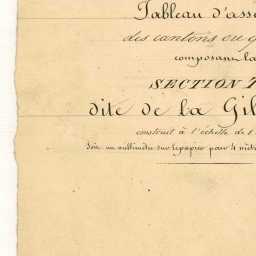 Tableau d'ass
des cantons ou
composant la
SECTION
dite de la Gil
construit à l'échelle de 1
Soit un millimètre sur le papier pour 4 mèt